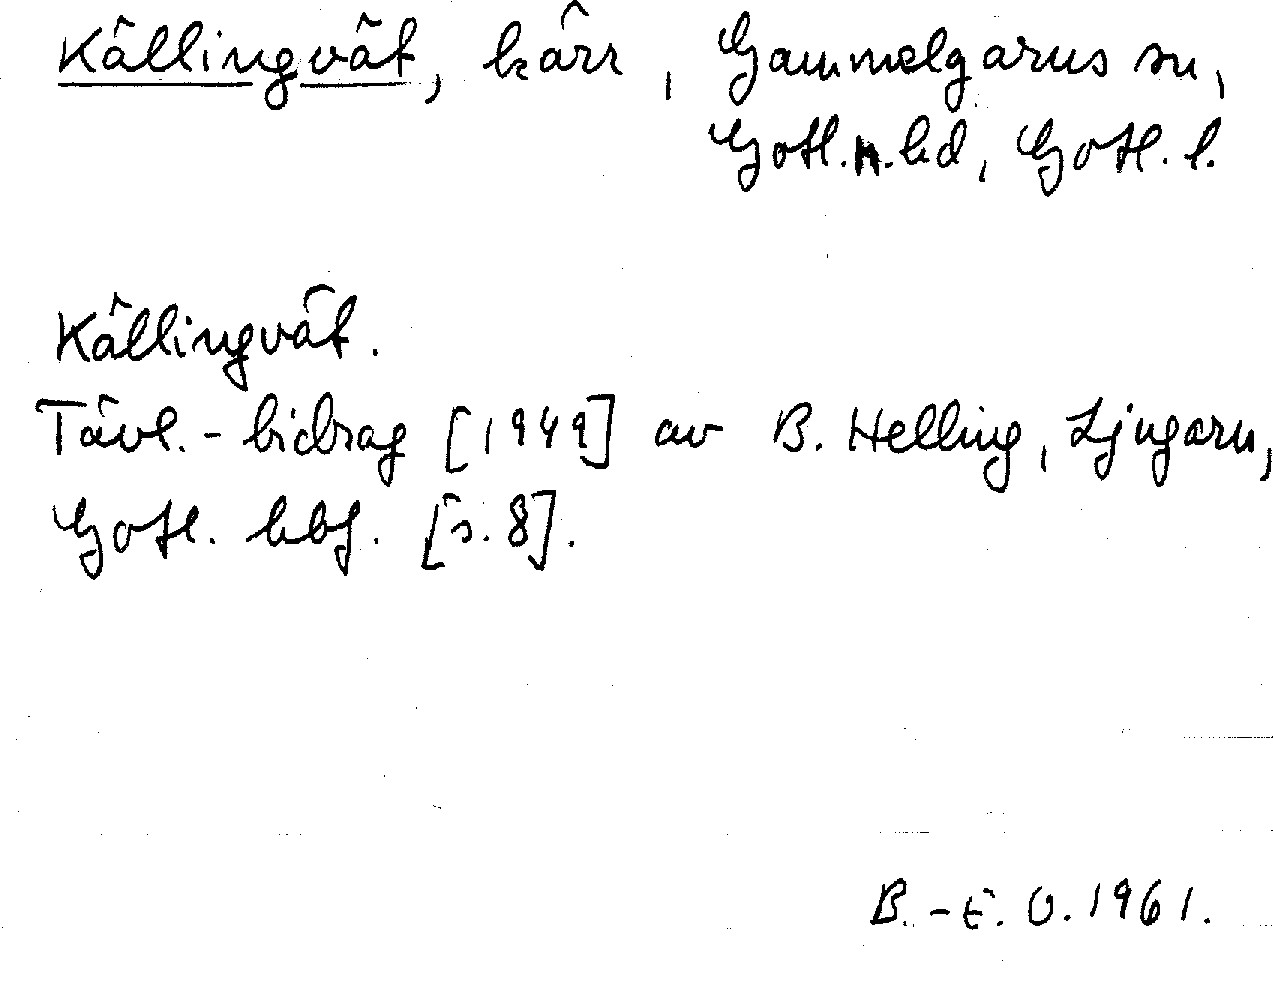 Källingvät, kärr, Gammelgarns sn,
Gotl. n. hd, Gotl. l.
Källingvät.
Tävl.-bidrag [1949] av B. Helling, Ljugarn,
Gotl. hbf. [s. 8].
B.-E. O. 1961.